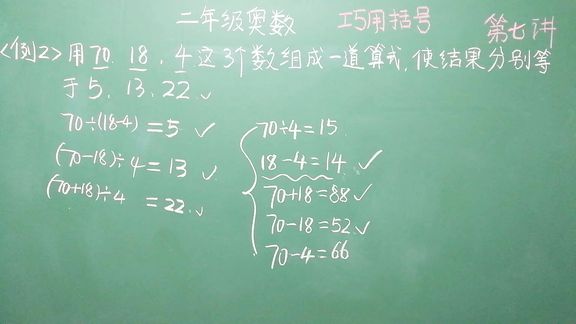 二年级奥数 巧用括号 第七讲
<例2> 用70、18、4这3个数组成一道算式,使结果分别等
于5、13、22 ✓
70÷(18-4)=5 ✓
(70-18)÷4=13 ✓
(70+18)÷4=22 ✓
70÷4=15
18-4=14 ✓
70+18=88 ✓
70-18=52 ✓
70-4=66